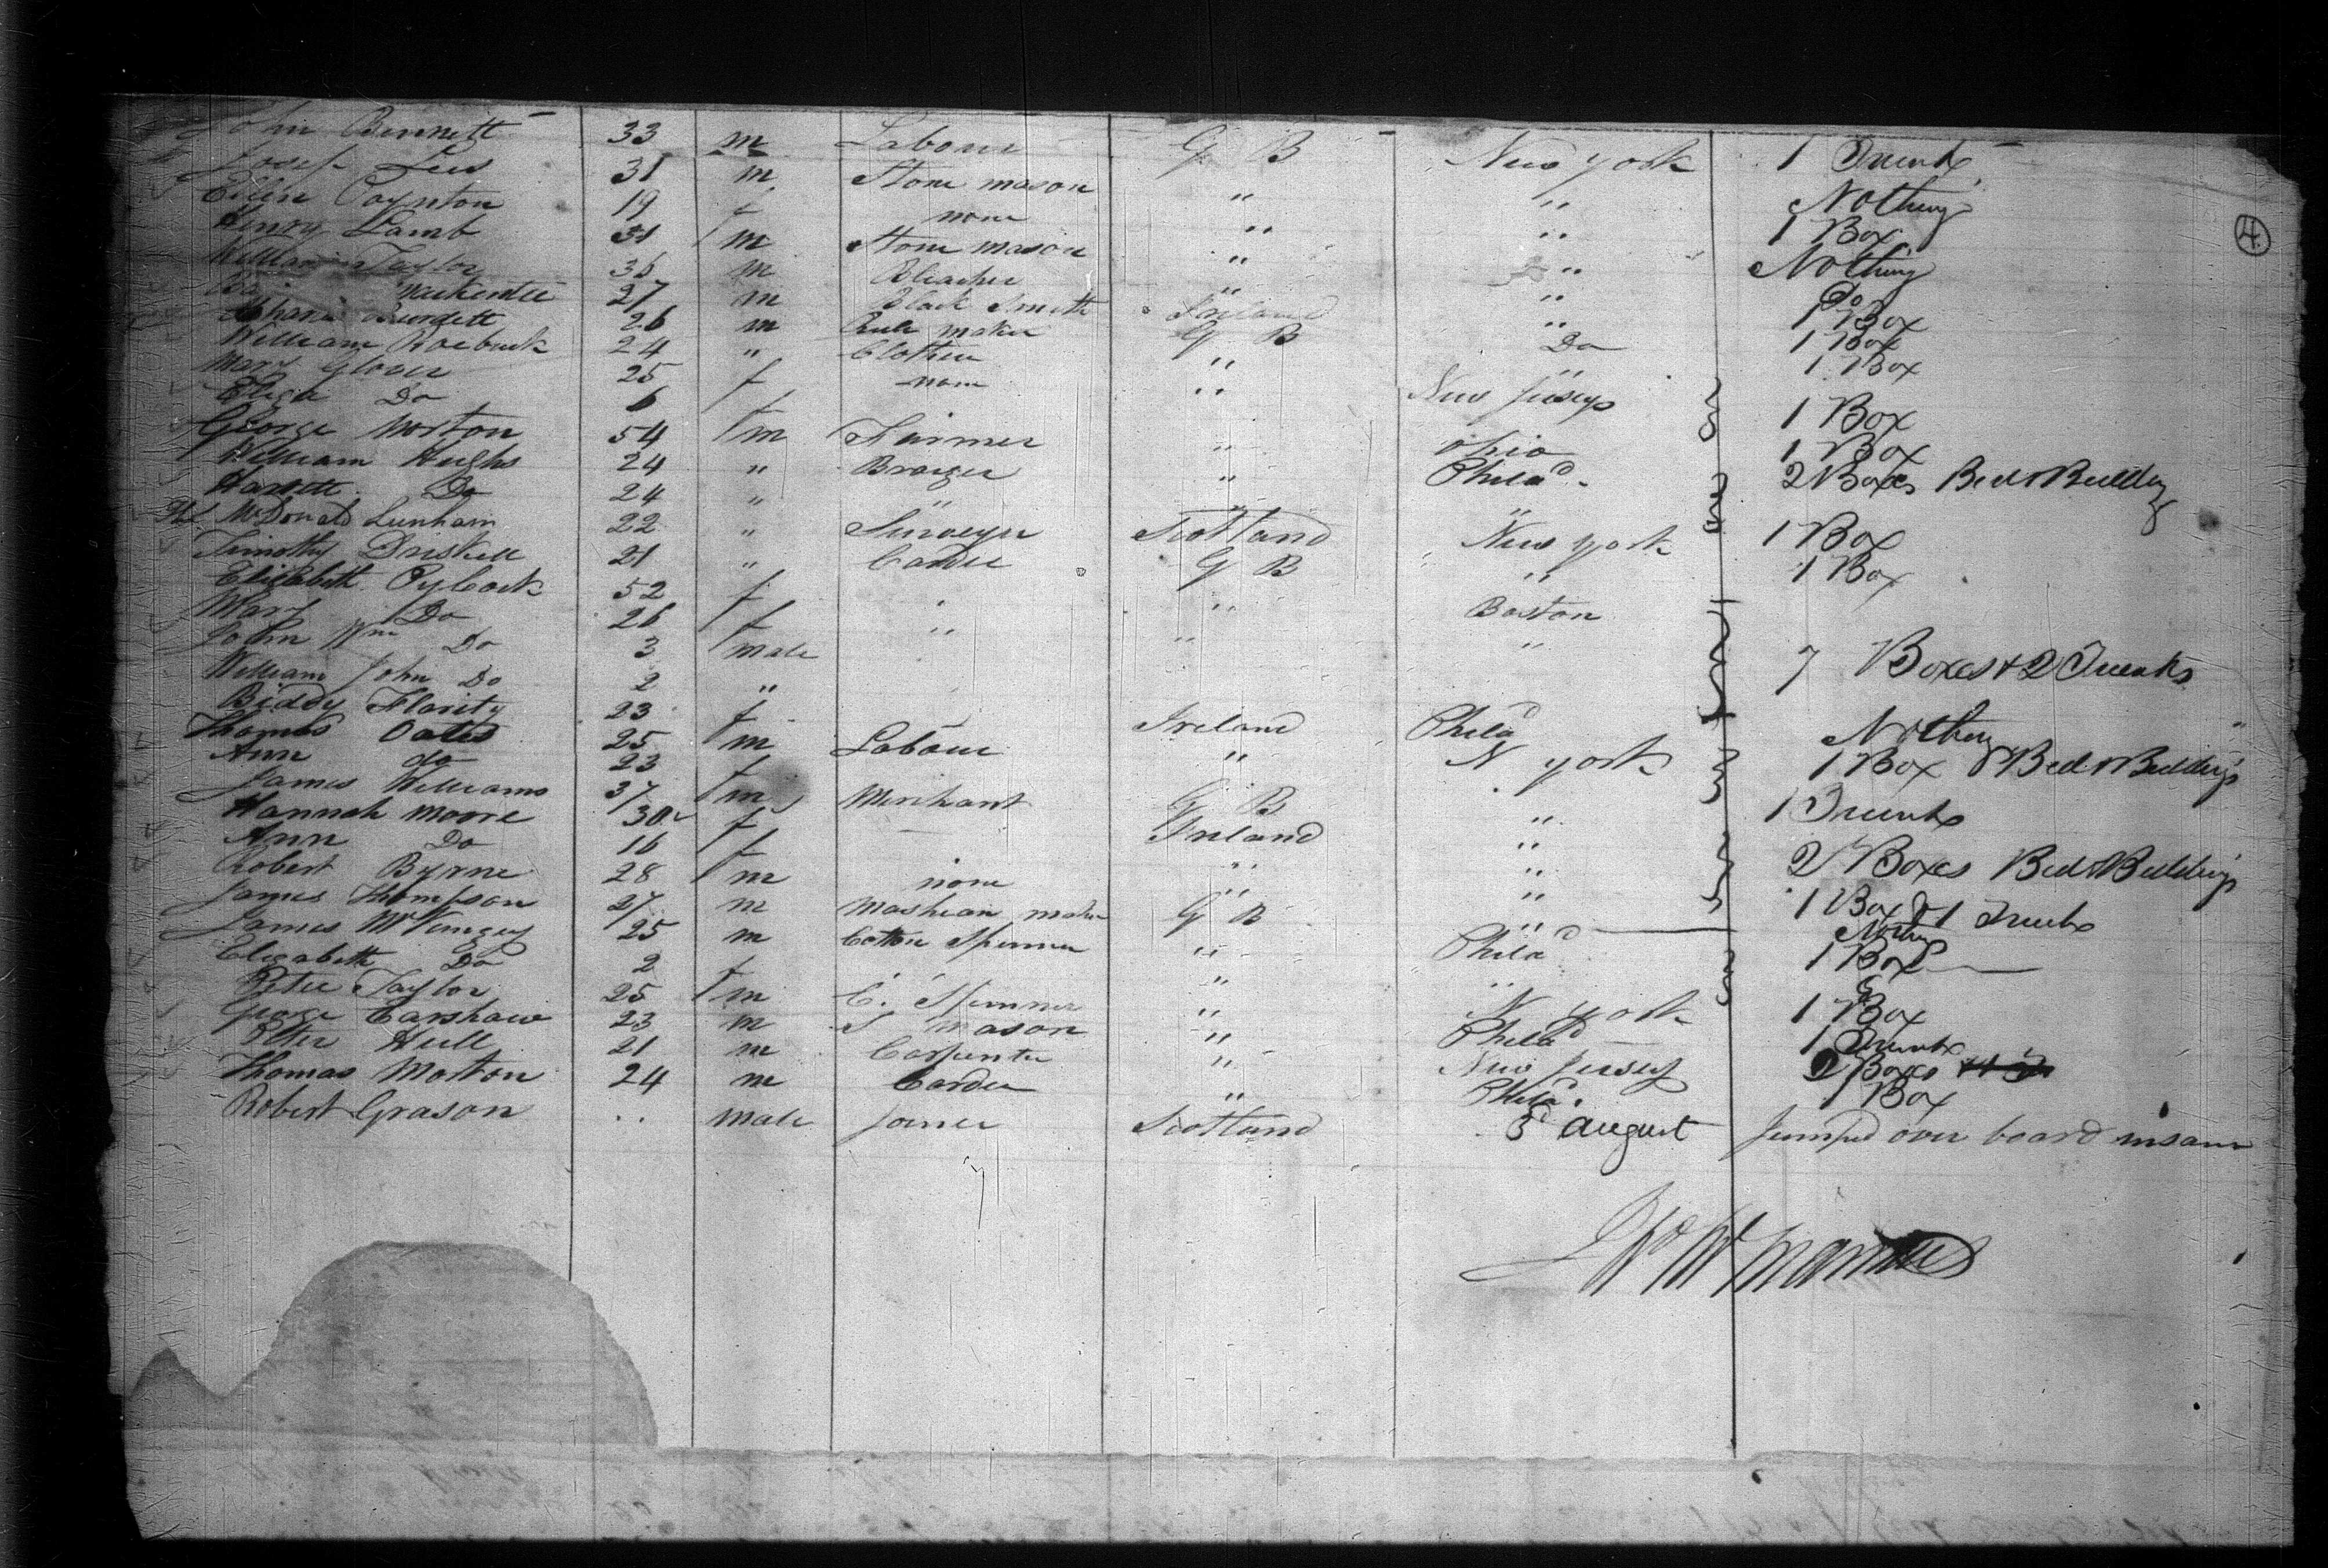 John Bennett 33 m Labour G B New york 1 Trunk
Josep Lees 31 m Stone mason " " Nothing
Ellen Poynton 19 f none " " 1 Box
4
Henry Lamb 31 m Stone mason " " Nothing
William Taylor 36 m Bleacher " " Do
27 m Black Smith Ireland " 1 Box
Burdett 26 m Rule maker G B Do 1 Box
William Roebuck 24 " Clothier " " 1 Box
Mary Glover 25 f none " New Jerseys
Eliza Do 6 1 Box
George Morton 54 m Farmer " Ohio 1 Box
William Hughs 24 " Brazier " Philad 2 Boxes Bed & Bedding
Harriett Do 24 " " "
McDonald Lunham 22 " Surveyr Scotland New york 1 Box
Timothy Driskell 21 " Carder G B " 1 Box
Elizabeth Pycock 52 f " Boston
Mary Do 26 f " "
John Wm Do 3 male " 7 Boxes & 2 Trunks
William John Do 2 "
Biddy Flarity 23 f Ireland Philad Nothing "
Thomas Oates 25 m Labour " N york 1 Box & Bed & Bedding
Ann do 23 f
James Williams 37 m Merchant G B " 1 Trunk
Hannah Moore 30 f Ireland "
Ann Do 16 f " " 2 Boxes Bed & Bedding
Robert Byrne 28 m none " " 1 Box & 1 Trunk
James Thompson 27 m Mashean maker G B " Nothing
James 25 m Cotton Spinner " Philad 1 Box
Elizabeth Do 2 f " "
Peter Taylor 25 m C. Spinner " N york 1 Box
George Earshaw 23 m S mason " Philad 1 Trunk
Peter Hull 21 m Carpenter " New Jersey 2 Boxes
Thomas Morton 24 m Carder " Philad. 1 Box
Robert Grason .. male Joiner Scotland 5 august Jumped over board insane